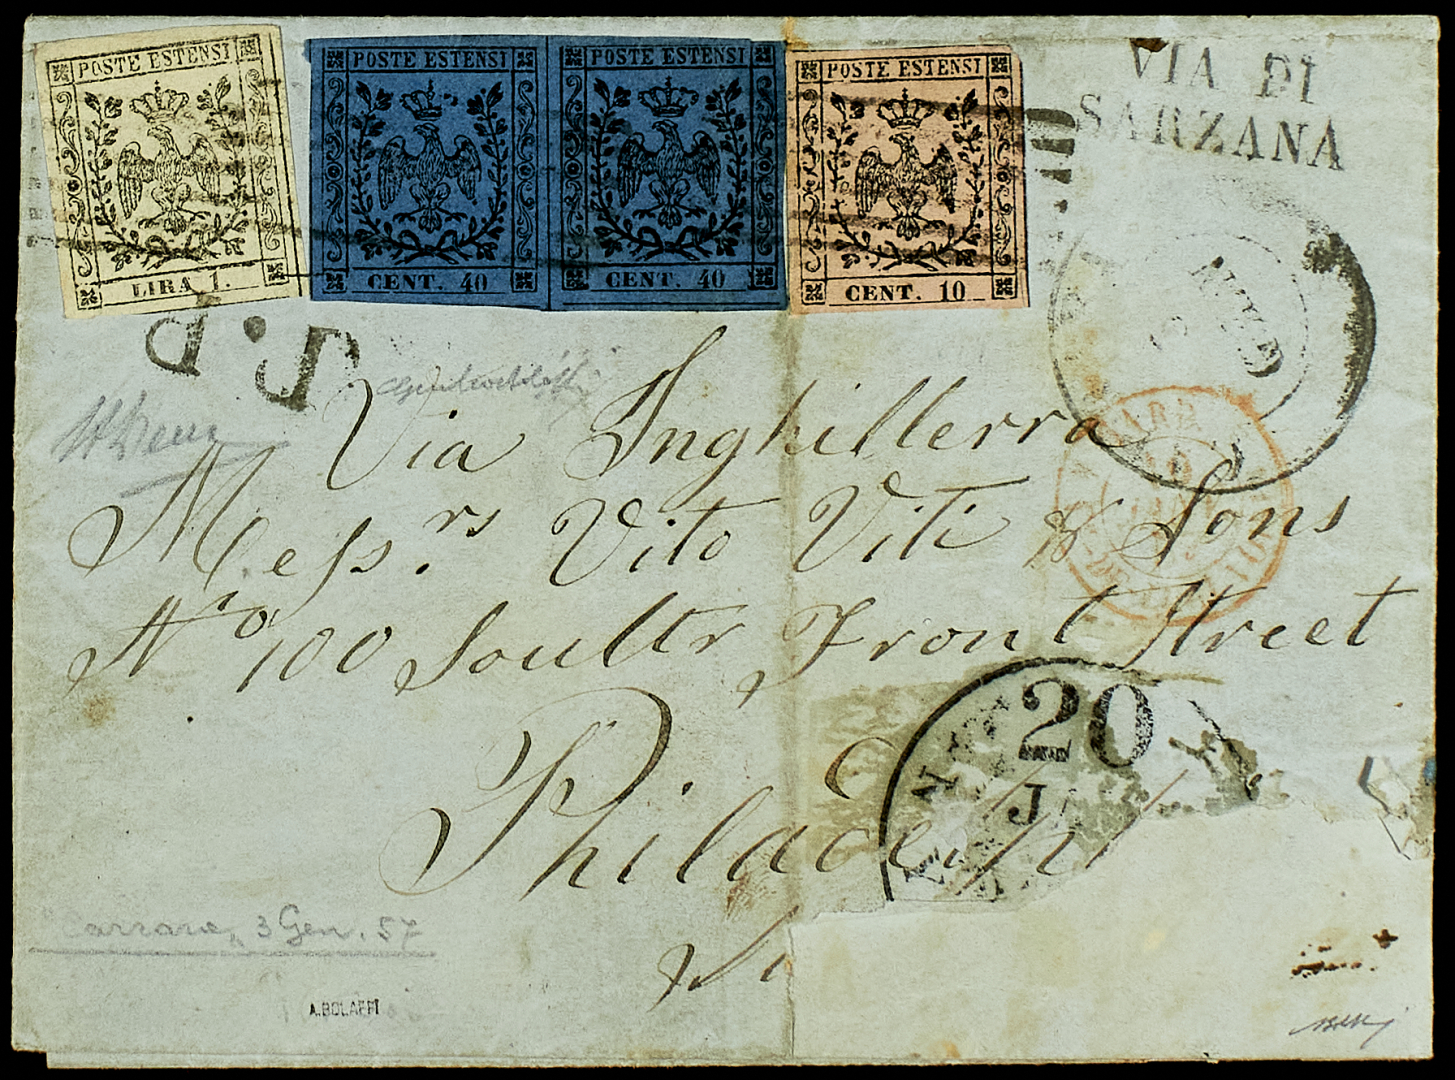 POSTE ESTENSI
LIRA 1.
POSTE ESTENSI
CENT. 40
POSTE ESTENSI
CENT. 40
POSTE ESTENSI
CENT. 10
VIA DI
SARZANA
P.D.
Via Inghilterra
Mess.rs Vito Viti & Sons
No 100 South Front Street
Philadelp
20
JA
Carrara, 3 Gen. 57
A. BOLAFFI